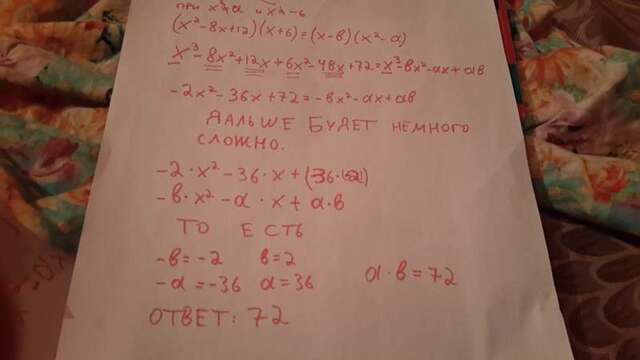 при x²≠a и x≠-6
(x²-8x+12)(x+6)=(x-в)(x²-a)
x³-8x²+12x+6x²-48x+72=x³-вx²-ax+aв
-2x²-36x+72=-вx²-ax+aв
ДАЛЬШЕ БУДЕТ НЕМНОГО
СЛОЖНО.
-2·x²-36·x+(-36·(-2))
-в·x²-a·x+a·в
ТО ЕСТЬ
-в=-2 в=2
-a=-36 a=36 a·в=72
ОТВЕТ: 72